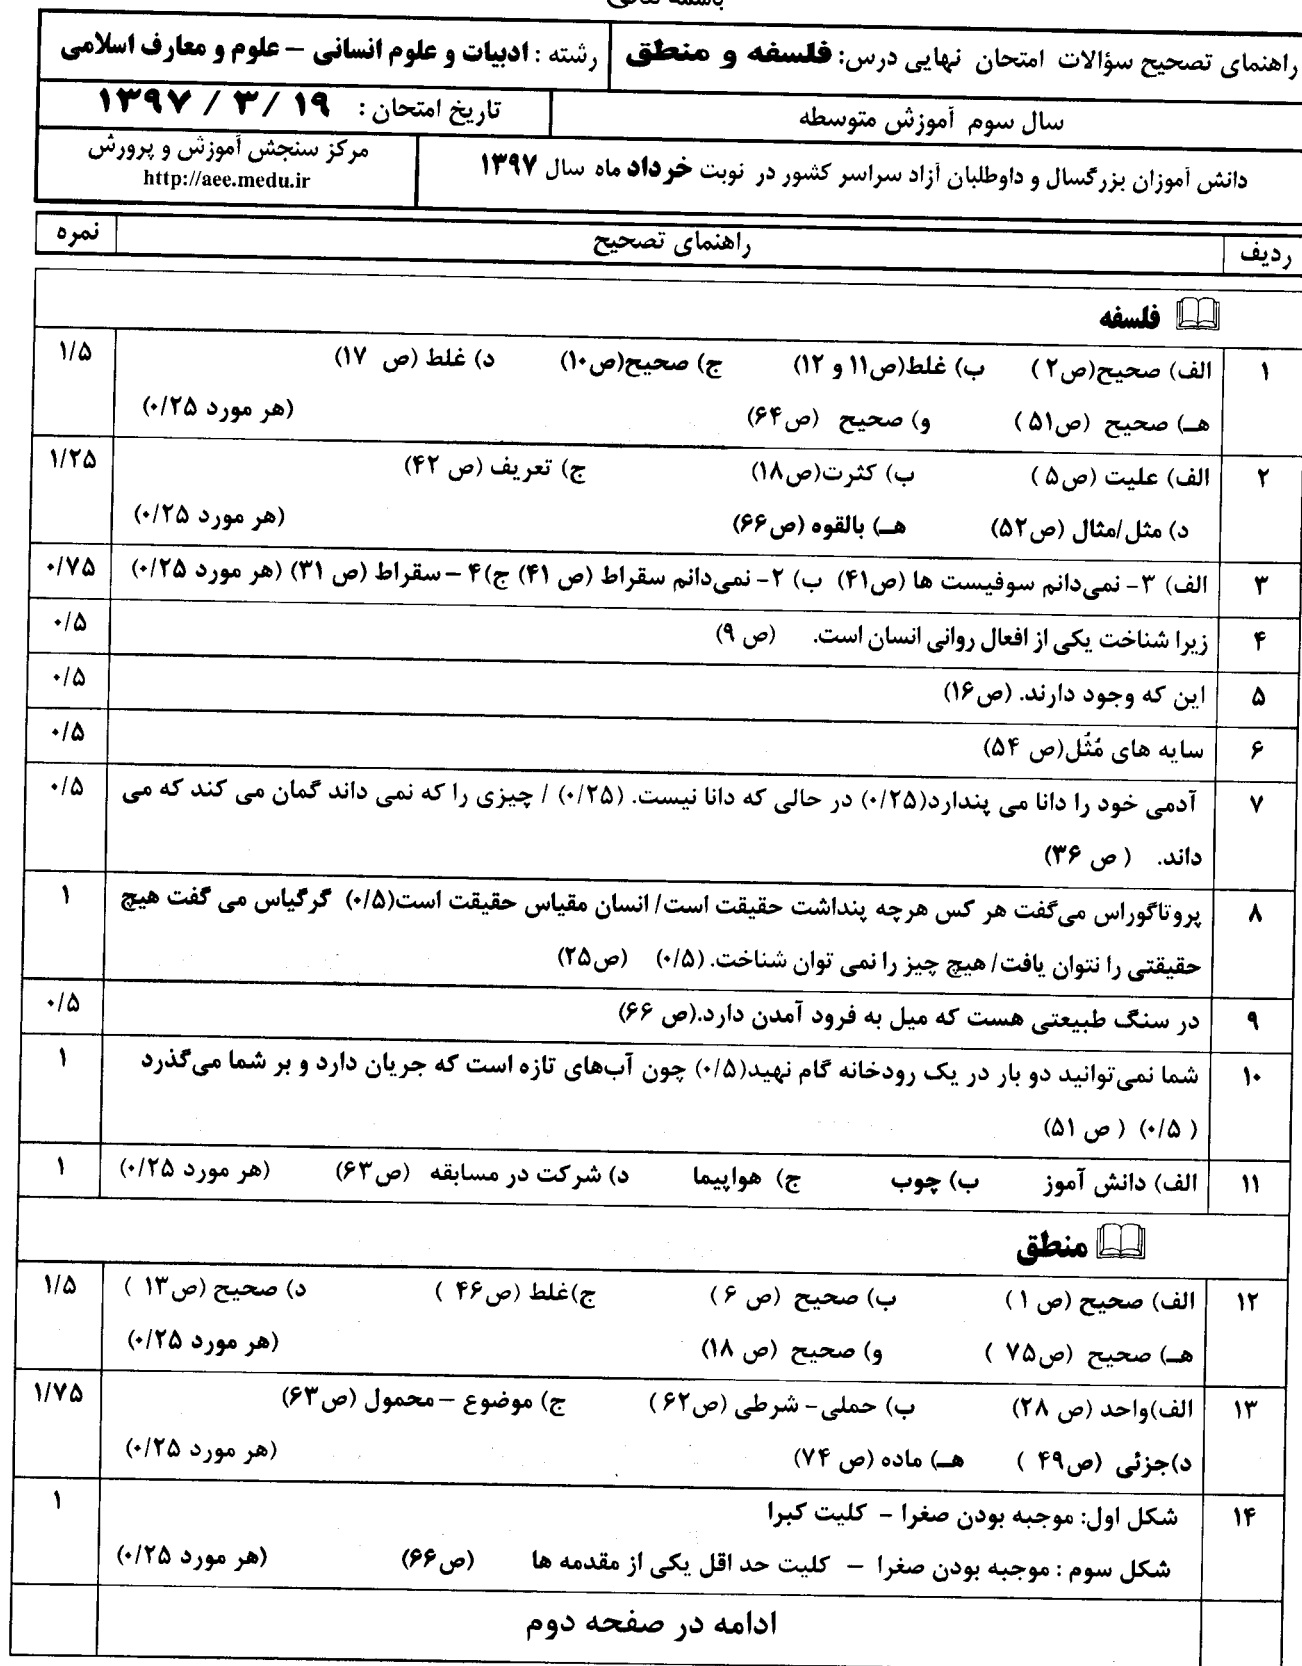 باسمه تعالی
راهنمای تصحیح سؤالات امتحان نهایی درس: فلسفه و منطق
رشته : ادبیات و علوم انسانی – علوم و معارف اسلامی
سال سوم آموزش متوسطه
تاریخ امتحان : ۱۹ / ۳ / ۱۳۹۷
دانش آموزان بزرگسال و داوطلبان آزاد سراسر کشور در نوبت خرداد ماه سال ۱۳۹۷
مرکز سنجش آموزش و پرورش
http://aee.medu.ir
ردیف راهنمای تصحیح نمره
فلسفه
۱ الف) صحیح(ص۲) ب) غلط(ص۱۱ و ۱۲) ج) صحیح(ص۱۰) د) غلط (ص ۱۷) ۱/۵
هـ) صحیح (ص۵۱) و) صحیح (ص۶۴) (هر مورد ۰/۲۵)
۲ الف) علیت (ص۵) ب) کثرت(ص۱۸) ج) تعریف (ص ۴۲) ۱/۲۵
د) مثل/مثال (ص۵۲) هـ) بالقوه (ص۶۶) (هر مورد ۰/۲۵)
۳ الف) ۳- نمی‌دانم سوفیست ها (ص۴۱) ب) ۲- نمی‌دانم سقراط (ص ۴۱) ج)۴ – سقراط (ص ۳۱) (هر مورد ۰/۲۵) ۰/۷۵
۴ زیرا شناخت یکی از افعال روانی انسان است. (ص ۹) ۰/۵
۵ این که وجود دارند. (ص۱۶) ۰/۵
۶ سایه های مُثُل(ص ۵۴) ۰/۵
۷ آدمی خود را دانا می پندارد(۰/۲۵) در حالی که دانا نیست. (۰/۲۵) / چیزی را که نمی داند گمان می کند که می ۰/۵
داند. ( ص ۳۶)
۸ پروتاگوراس می‌گفت هر کس هرچه پنداشت حقیقت است/ انسان مقیاس حقیقت است(۰/۵) گرگیاس می گفت هیچ ۱
حقیقتی را نتوان یافت/ هیچ چیز را نمی توان شناخت. (۰/۵) (ص۲۵)
۹ در سنگ طبیعتی هست که میل به فرود آمدن دارد.(ص ۶۶) ۰/۵
۱۰ شما نمی‌توانید دو بار در یک رودخانه گام نهید(۰/۵) چون آب‌های تازه است که جریان دارد و بر شما می‌گذرد ۱
( ۰/۵) ( ص ۵۱)
۱۱ الف) دانش آموز ب) چوب ج) هواپیما د) شرکت در مسابقه (ص۶۳) (هر مورد ۰/۲۵) ۱
منطق
۱۲ الف) صحیح (ص ۱) ب) صحیح (ص ۶) ج)غلط (ص۴۶ ) د) صحیح (ص۱۳ ) ۱/۵
هـ) صحیح (ص۷۵ ) و) صحیح (ص ۱۸) (هر مورد ۰/۲۵)
۱۳ الف)واحد (ص ۲۸) ب) حملی- شرطی (ص۶۲) ج) موضوع – محمول (ص۶۳) ۱/۷۵
د)جزئی (ص۴۹ ) هـ) ماده (ص ۷۴) (هر مورد ۰/۲۵)
۱۴ شکل اول: موجبه بودن صغرا – کلیت کبرا ۱
شکل سوم : موجبه بودن صغرا – کلیت حد اقل یکی از مقدمه ها (ص۶۶) (هر مورد ۰/۲۵)
ادامه در صفحه دوم